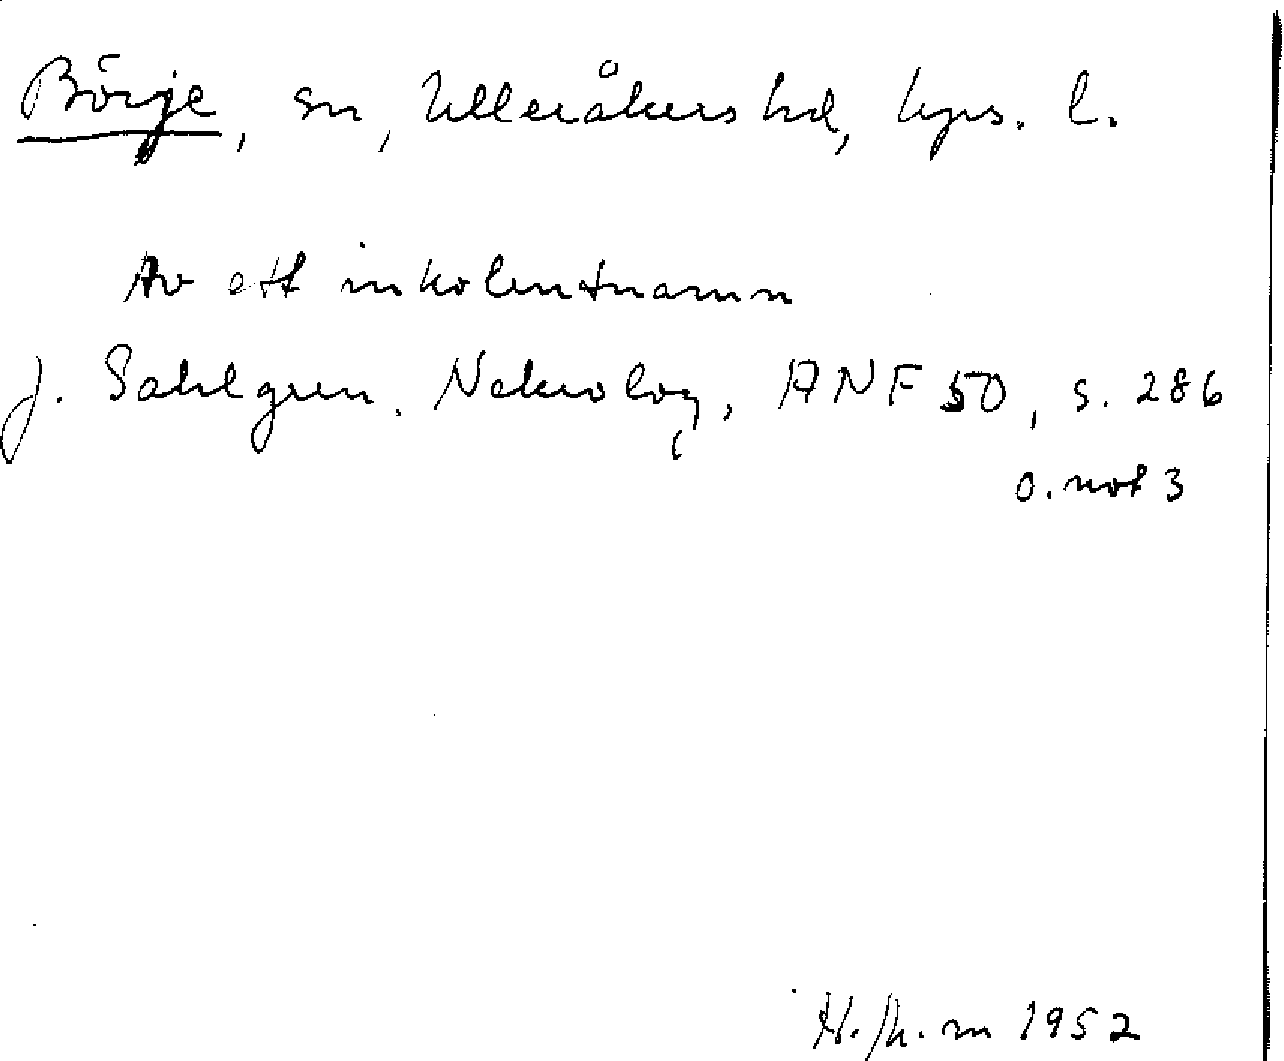 Börje, sn, Ulleråkers hd, Upps. l.
Av ett inkolentnamn
J. Sahlgren. Nekrolog, ANF 50, s. 286
o. not 3
1952